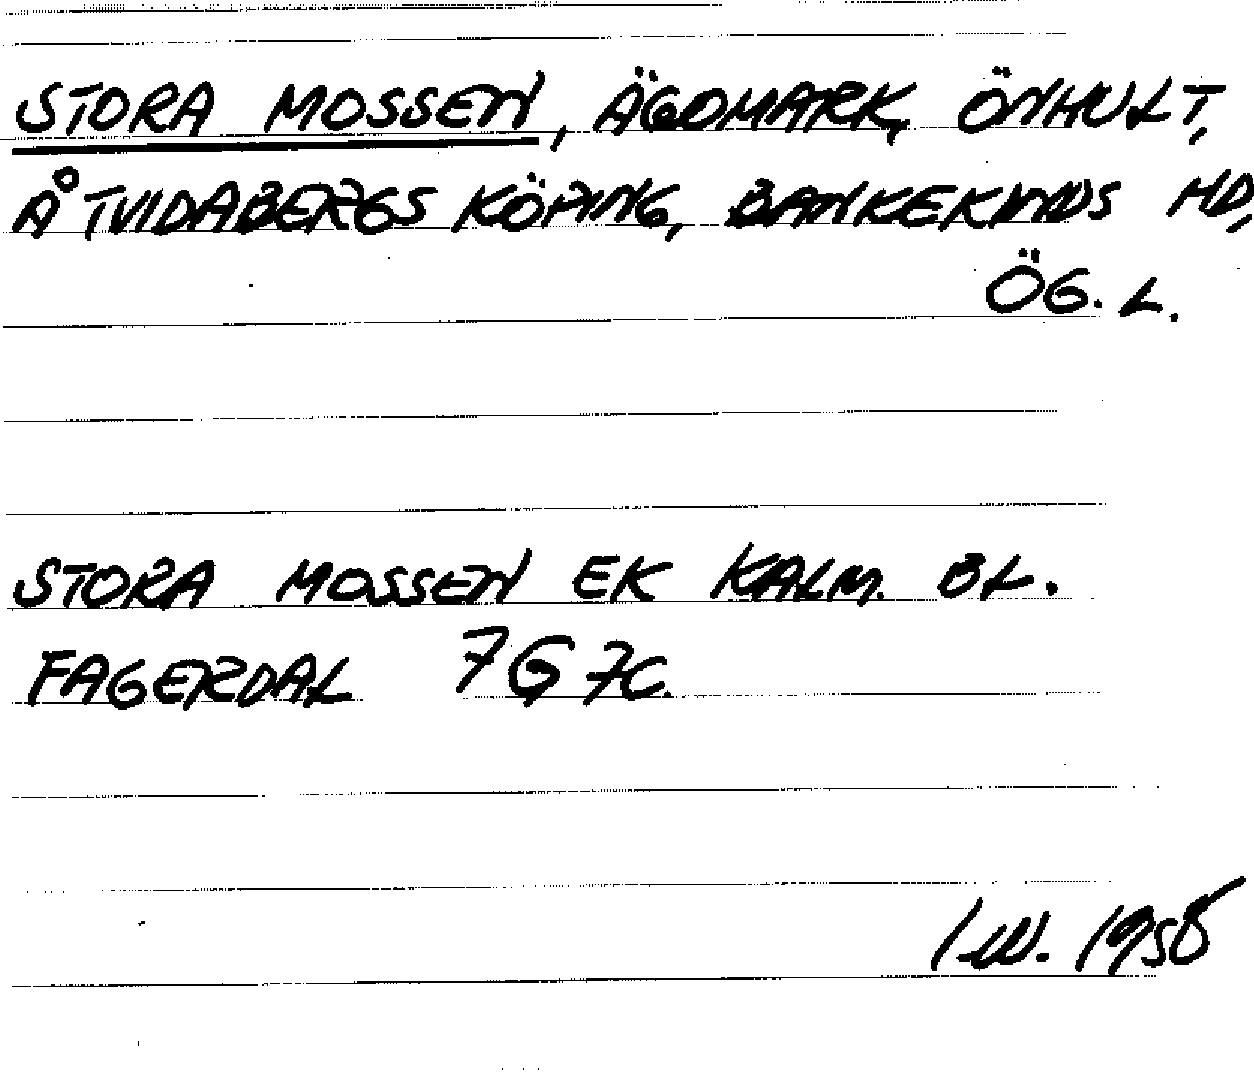 STORA MOSSEN, ÄGOMARK, ÖNHULT,
ÅTVIDABERGS KÖPING, BANKEKINDS HD,
ÖG. L.
STORA MOSSEN EK KALM. BL.
FAGERDAL 7G 7C.
I.W. 1958